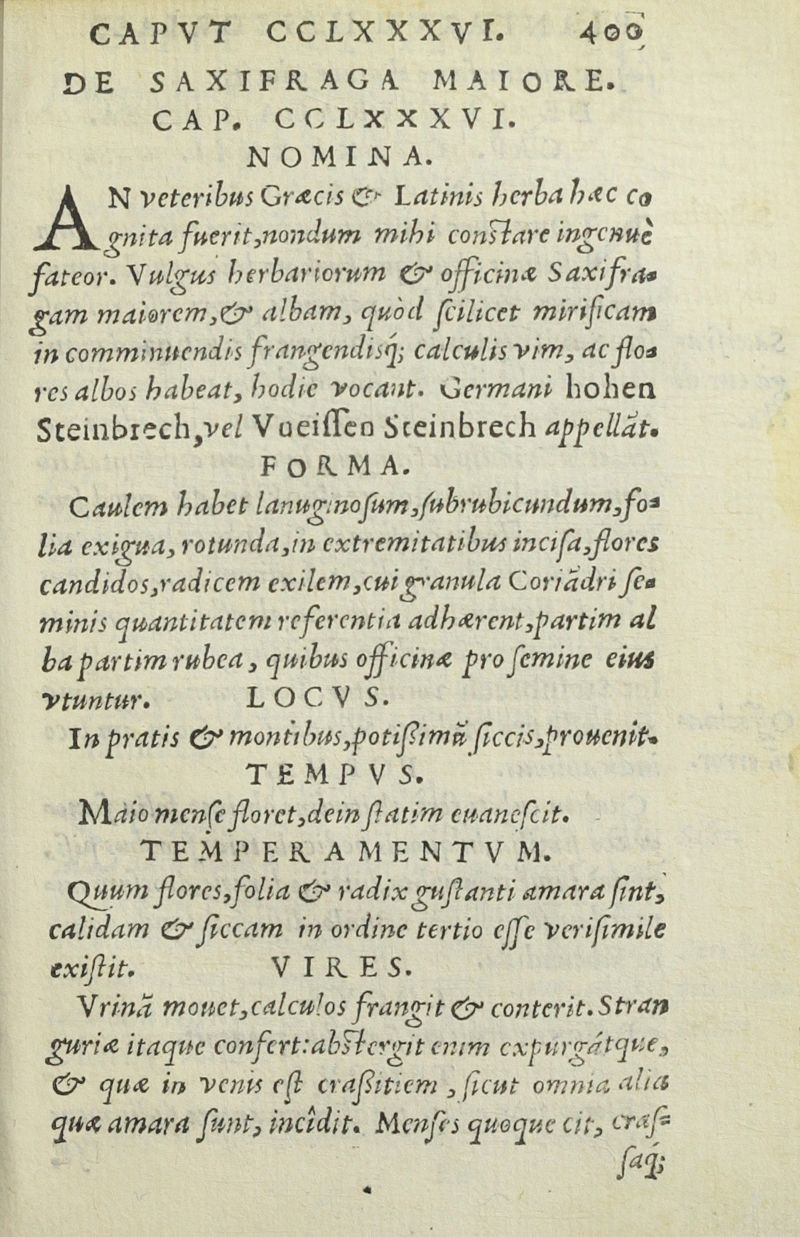 CAPVT CCLXXXVI. 400
DE SAXIFRAGA MAIORE.
CAP. CCLXXXVI.
NOMINA.
AN veteribus Græcis & Latinis herba hæc co
gnita fuerit, nondum mihi constare ingenuè
fateor. Vulgus herbariorum & officinæ Saxifra-
gam maiorem, & albam, quòd scilicet mirificam
in comminuendis frangendisq́; calculis vim, ac flo-
res albos habeat, hodie vocant. Germani hohen
Steinbrech, vel Vueissen Steinbrech appellāt.
FORMA.
Caulem habet lanuginosum, subrubicundum, fo-
lia exigua, rotunda, in extremitatibus incisa, flores
candidos, radicem exilem, cui granula Coriādri se-
minis quantitatem referentia adhærent, partim al
ba partim rubea, quibus officinæ pro semine eius
vtuntur. LOCVS.
In pratis & montibus, potißimū siccis, prouenit.
TEMPVS.
Maio mense floret, dein statim euanescit.
TEMPERAMENTVM.
Quum flores, folia & radix gustanti amara sint,
calidam & siccam in ordine tertio esse verisimile
existit. VIRES.
Vrinā mouet, calculos frangit & conterit. Stran
guriæ itaque confert: abstergit enim expurgátque,
& quæ in venis est craßitiem, sicut omnia alia
quæ amara sunt, incîdit. Menses quoque cit, cras-
saq́;